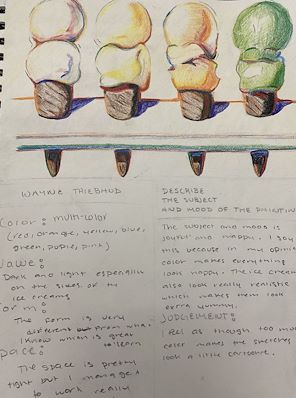 WAYNE THIEBAUD
Color: multi-color
(red, orange, yellow, blue,
green, purple, pink)
Value:
Dark and light especially
on the sides of the
ice creams
Form:
The form is very
different from what
I know which is great
to learn
Space:
The space is pretty
tight but I managed
to work really
DESCRIBE
THE SUBJECT
AND MOOD OF THE PAINTING
The subject and mood is
joyful and happy. I say
this because in my opinion
color makes everything
look happy. The ice cream
also look really realistic
which makes them look
extra yummy.
JUDGEMENT:
I feel as though too much
color makes the sketches
look a little cartoonie.